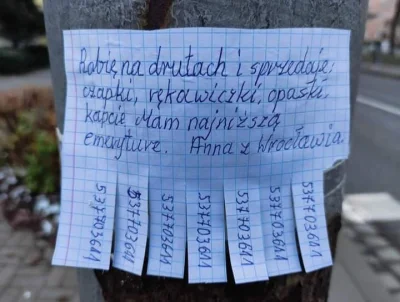 Robię na drutach i sprzedaję:
czapki, rękawiczki, opaski,
kapcie Mam najniższą
emeryturę. Anna z Wrocławia.
537703641
537703641
537703641
537703641
537703641
537703641
537703641